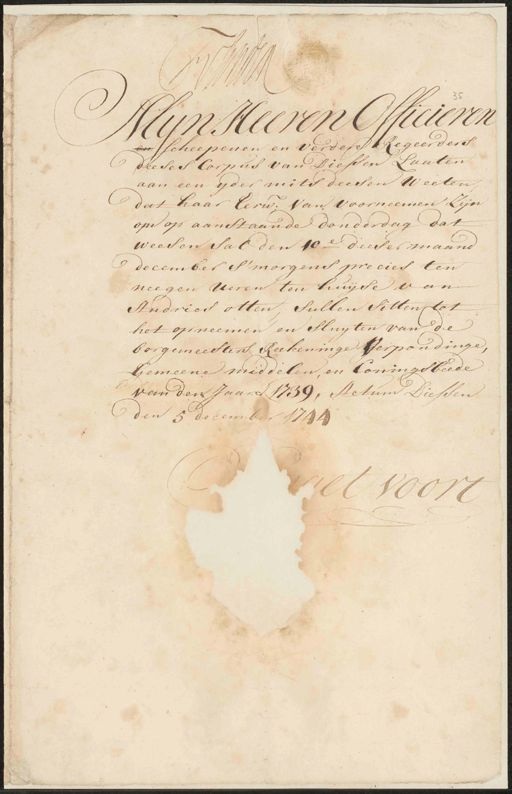 35
Mijn Heeren Officieren
en Scheepenen en verders Regeerders
deeses Corpus van Diessen Laaten
aan een ijder mits deesen Weeten
dat haar Eerw. van voorneemen Zijn
om op aanstaande donderdag dat
weesen sal den 10e deeser maand
december s'morgens precies ten
neegen ueren ten huijse van
Andries otten, sullen sitten tot
het opneemen en sluijten van de
borgemeesters Reekeninge Verpondinge,
Gemeene middelen, en Coningsbeede
van den Jaare 1739, Actum Diessen
den 5 december 1744
voort